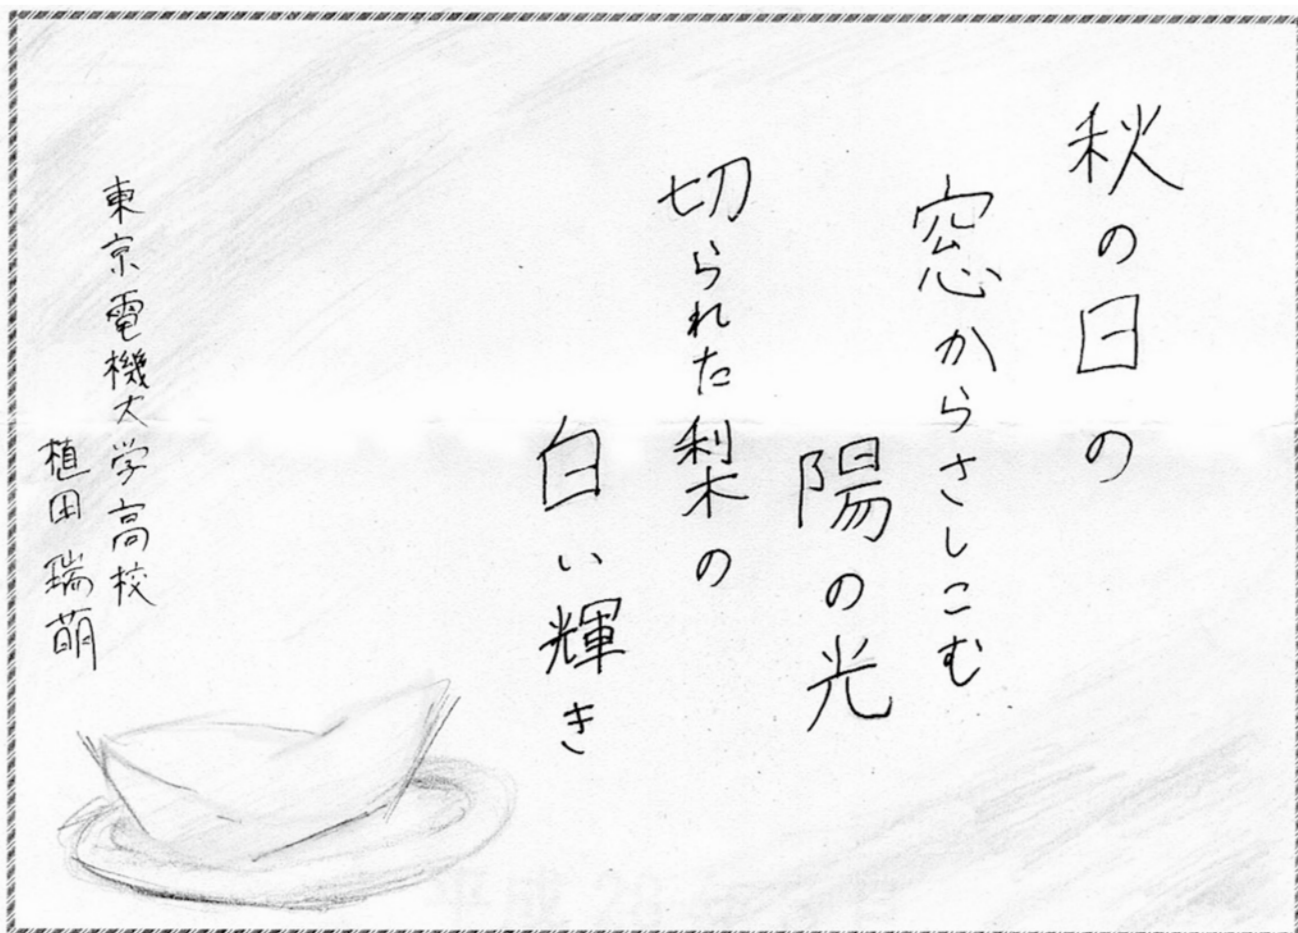 秋の日の
窓からさしこむ
陽の光
切られた梨の
白い輝き
東京電機大学高校
植田瑞萌